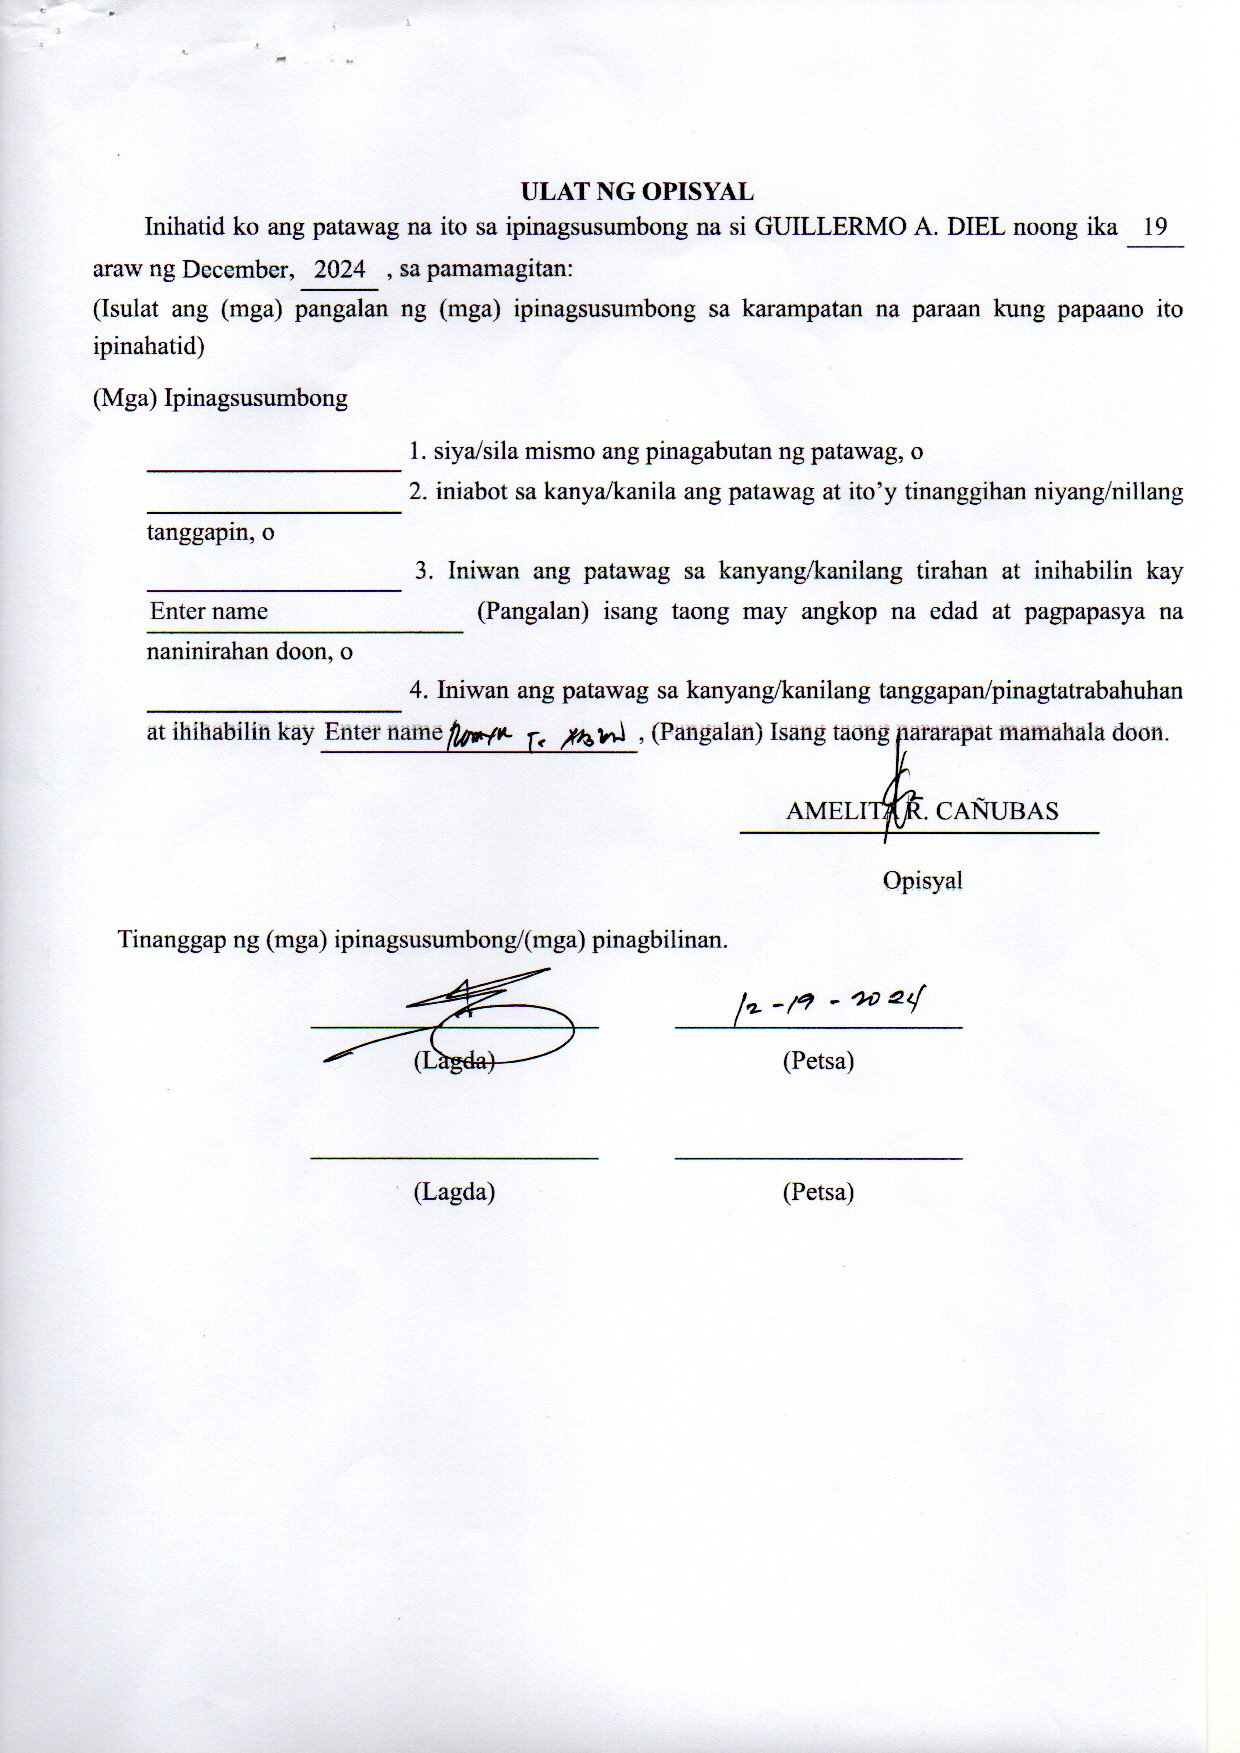 ULAT NG OPISYAL
Inihatid ko ang patawag na ito sa ipinagsusumbong na si GUILLERMO A. DIEL noong ika 19
araw ng December, 2024 , sa pamamagitan:
(Isulat ang (mga) pangalan ng (mga) ipinagsusumbong sa karampatan na paraan kung papaano ito
ipinahatid)
(Mga) Ipinagsusumbong
1. siya/sila mismo ang pinagabutan ng patawag, o
2. iniabot sa kanya/kanila ang patawag at ito’y tinanggihan niyang/nillang
tanggapin, o
3. Iniwan ang patawag sa kanyang/kanilang tirahan at inihabilin kay
Enter name (Pangalan) isang taong may angkop na edad at pagpapasya na
naninirahan doon, o
4. Iniwan ang patawag sa kanyang/kanilang tanggapan/pinagtatrabahuhan
at ihihabilin kay Enter name , (Pangalan) Isang taong nararapat mamahala doon.
AMELITA R. CAÑUBAS
Opisyal
Tinanggap ng (mga) ipinagsusumbong/(mga) pinagbilinan.
12-19-2024
(Lagda) (Petsa)
(Lagda) (Petsa)